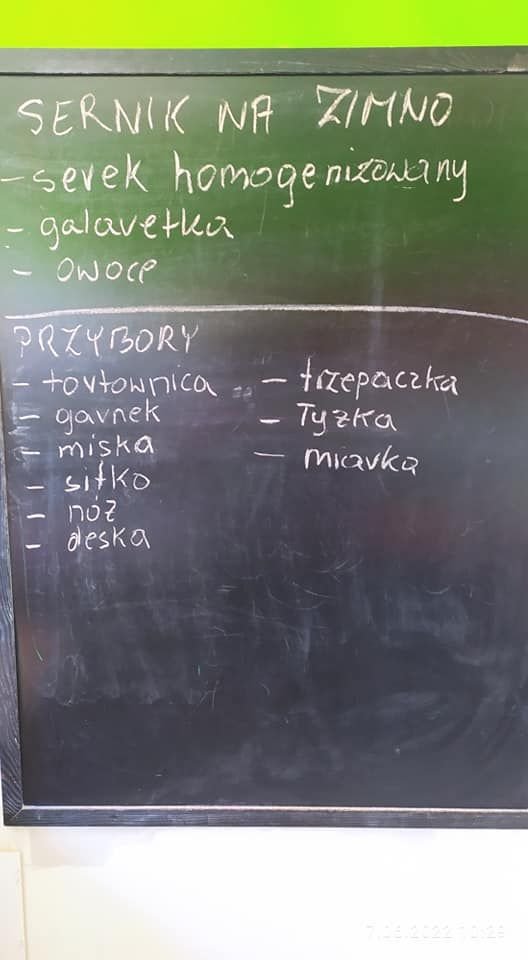 SERNIK NA ZIMNO
- serek homogenizowany
- galaretka
- owoce
PRZYBORY
- tortownica
- garnek
- miska
- sitko
- nóż
- deska
- trzepaczka
- Łyżka
- miarka
7.06.2022 10:29